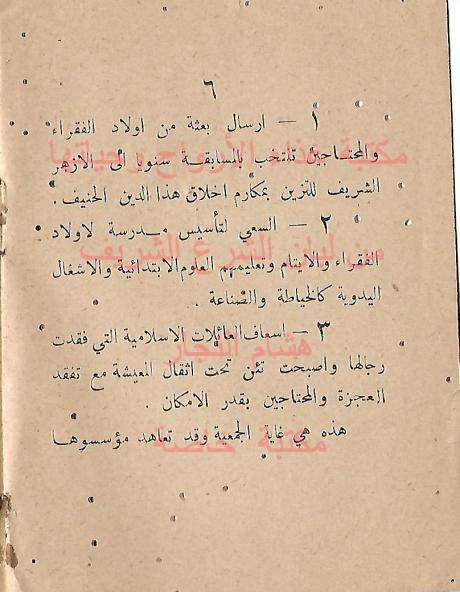 ٦
١ — ارسال بعثة من اولاد الفقراء
والمحتاجين تنتخب بالمسابقة سنويا الى الازهر
الشريف للتزين بمكارم اخلاق هذا الدين الحنيف .
٢ — السعي لتأسيس مدرسة لاولاد
الفقراء والايتام وتعليمهم العلوم الابتدائية والاشغال
اليدوية كالخياطة والصناعة .
٣ — اسعاف العائلات الاسلامية التي فقدت
رجالها واصبحت تئن تحت اثقال المعيشة مع تفقد
العجزة والمحتاجين بقدر الامكان .
هذه هي غاية الجمعية وقد تعاهد مؤسسوها
مكتبة غذاء الأرواح وحياتها
من لبنان الشرع الشريف
هشام النجار
مكتبة خاصة